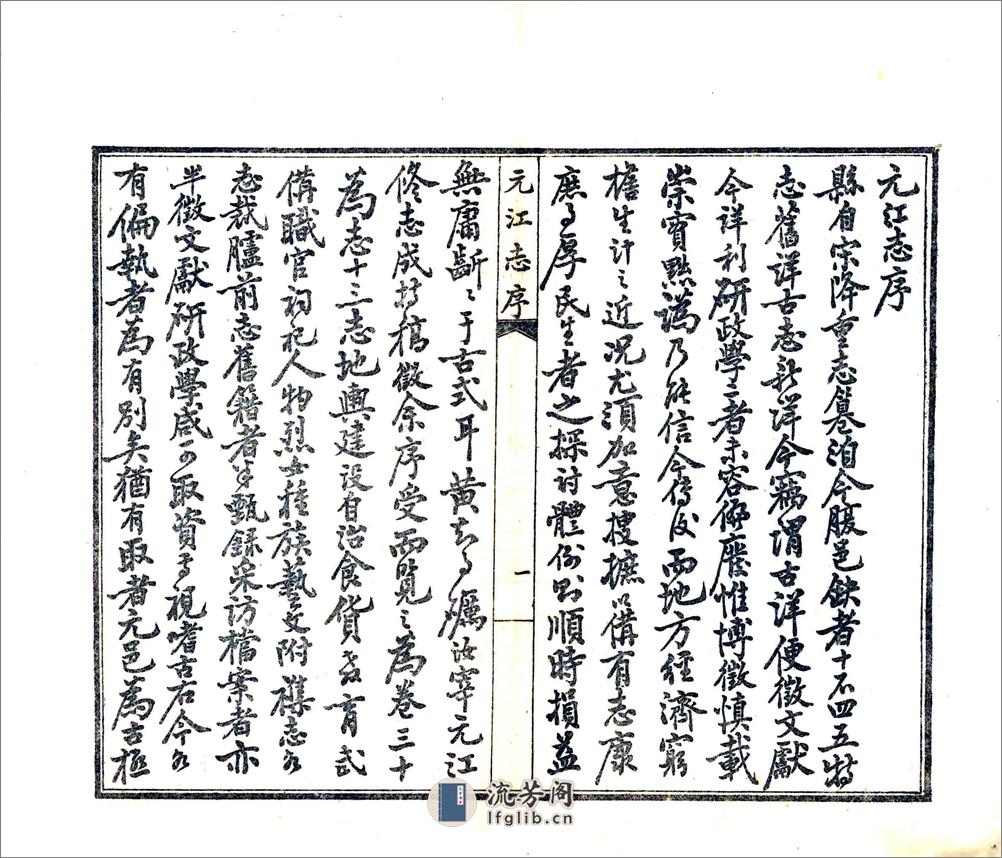 元江志序
縣自宋降重志纂洎今腹邑缺者十不四五特
志舊詳古志新詳今竊謂古詳便徵文獻
今詳利研政學二者未容偏廢惟博徵慎載
崇實黜譌乃能信今傳後而地方經濟窮
檐生計之近況尤須加意搜摭以備有志康
庶事厚民生者之探討體例則順時損益
元江志序
一
無庸齗〻于古式耳黃知事礪汝宰元江
修志成持稿徵余序受而覽之為卷三十
為志十三志地輿建設自治食貨教育武
備職官祠祀人物烈女種族藝文附襍志
志裁臚前志舊籍者半甄錄采訪檔案者亦
半徵文獻研政學咸可取資焉視嗜古右今
有偏執者為有別矣猶有取者元邑為古極
流芳阁
lfglib.cn